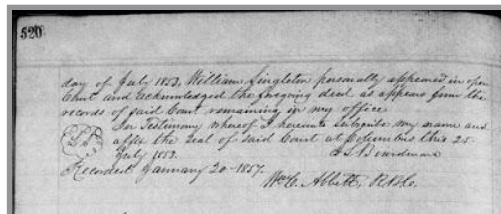 520
day of July 1853, William Singleton personally appeared in open
Court and acknowledged the foregoing deed as appears from the
records of said Court remaining in my office.
In Testimony whereof I hereunto subscribe my name and
affix the seal of said Court at Columbus this 25
July 1853.
Recorded January 20 - 1857.
Wm C. Abbitt,